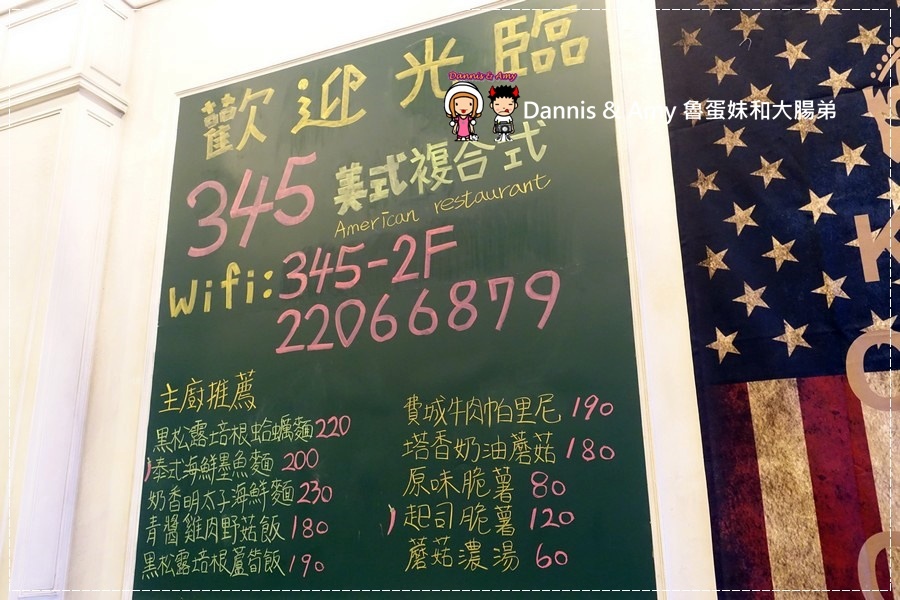 歡迎光臨
Dannis & Amy
Dannis & Amy 魯蛋妹和大腸弟
345 美式複合式
American restaurant
Wifi: 345-2F
22066879
主廚推薦
黑松露培根蛤蠣麵 220
泰式海鮮墨魚麵 200
奶香明太子海鮮麵 230
青醬雞肉野菇飯 180
黑松露培根蘆筍飯 190
費城牛肉帕里尼 190
塔香奶油蘑菇 180
原味脆薯 80
起司脆薯 120
蘑菇濃湯 60
K